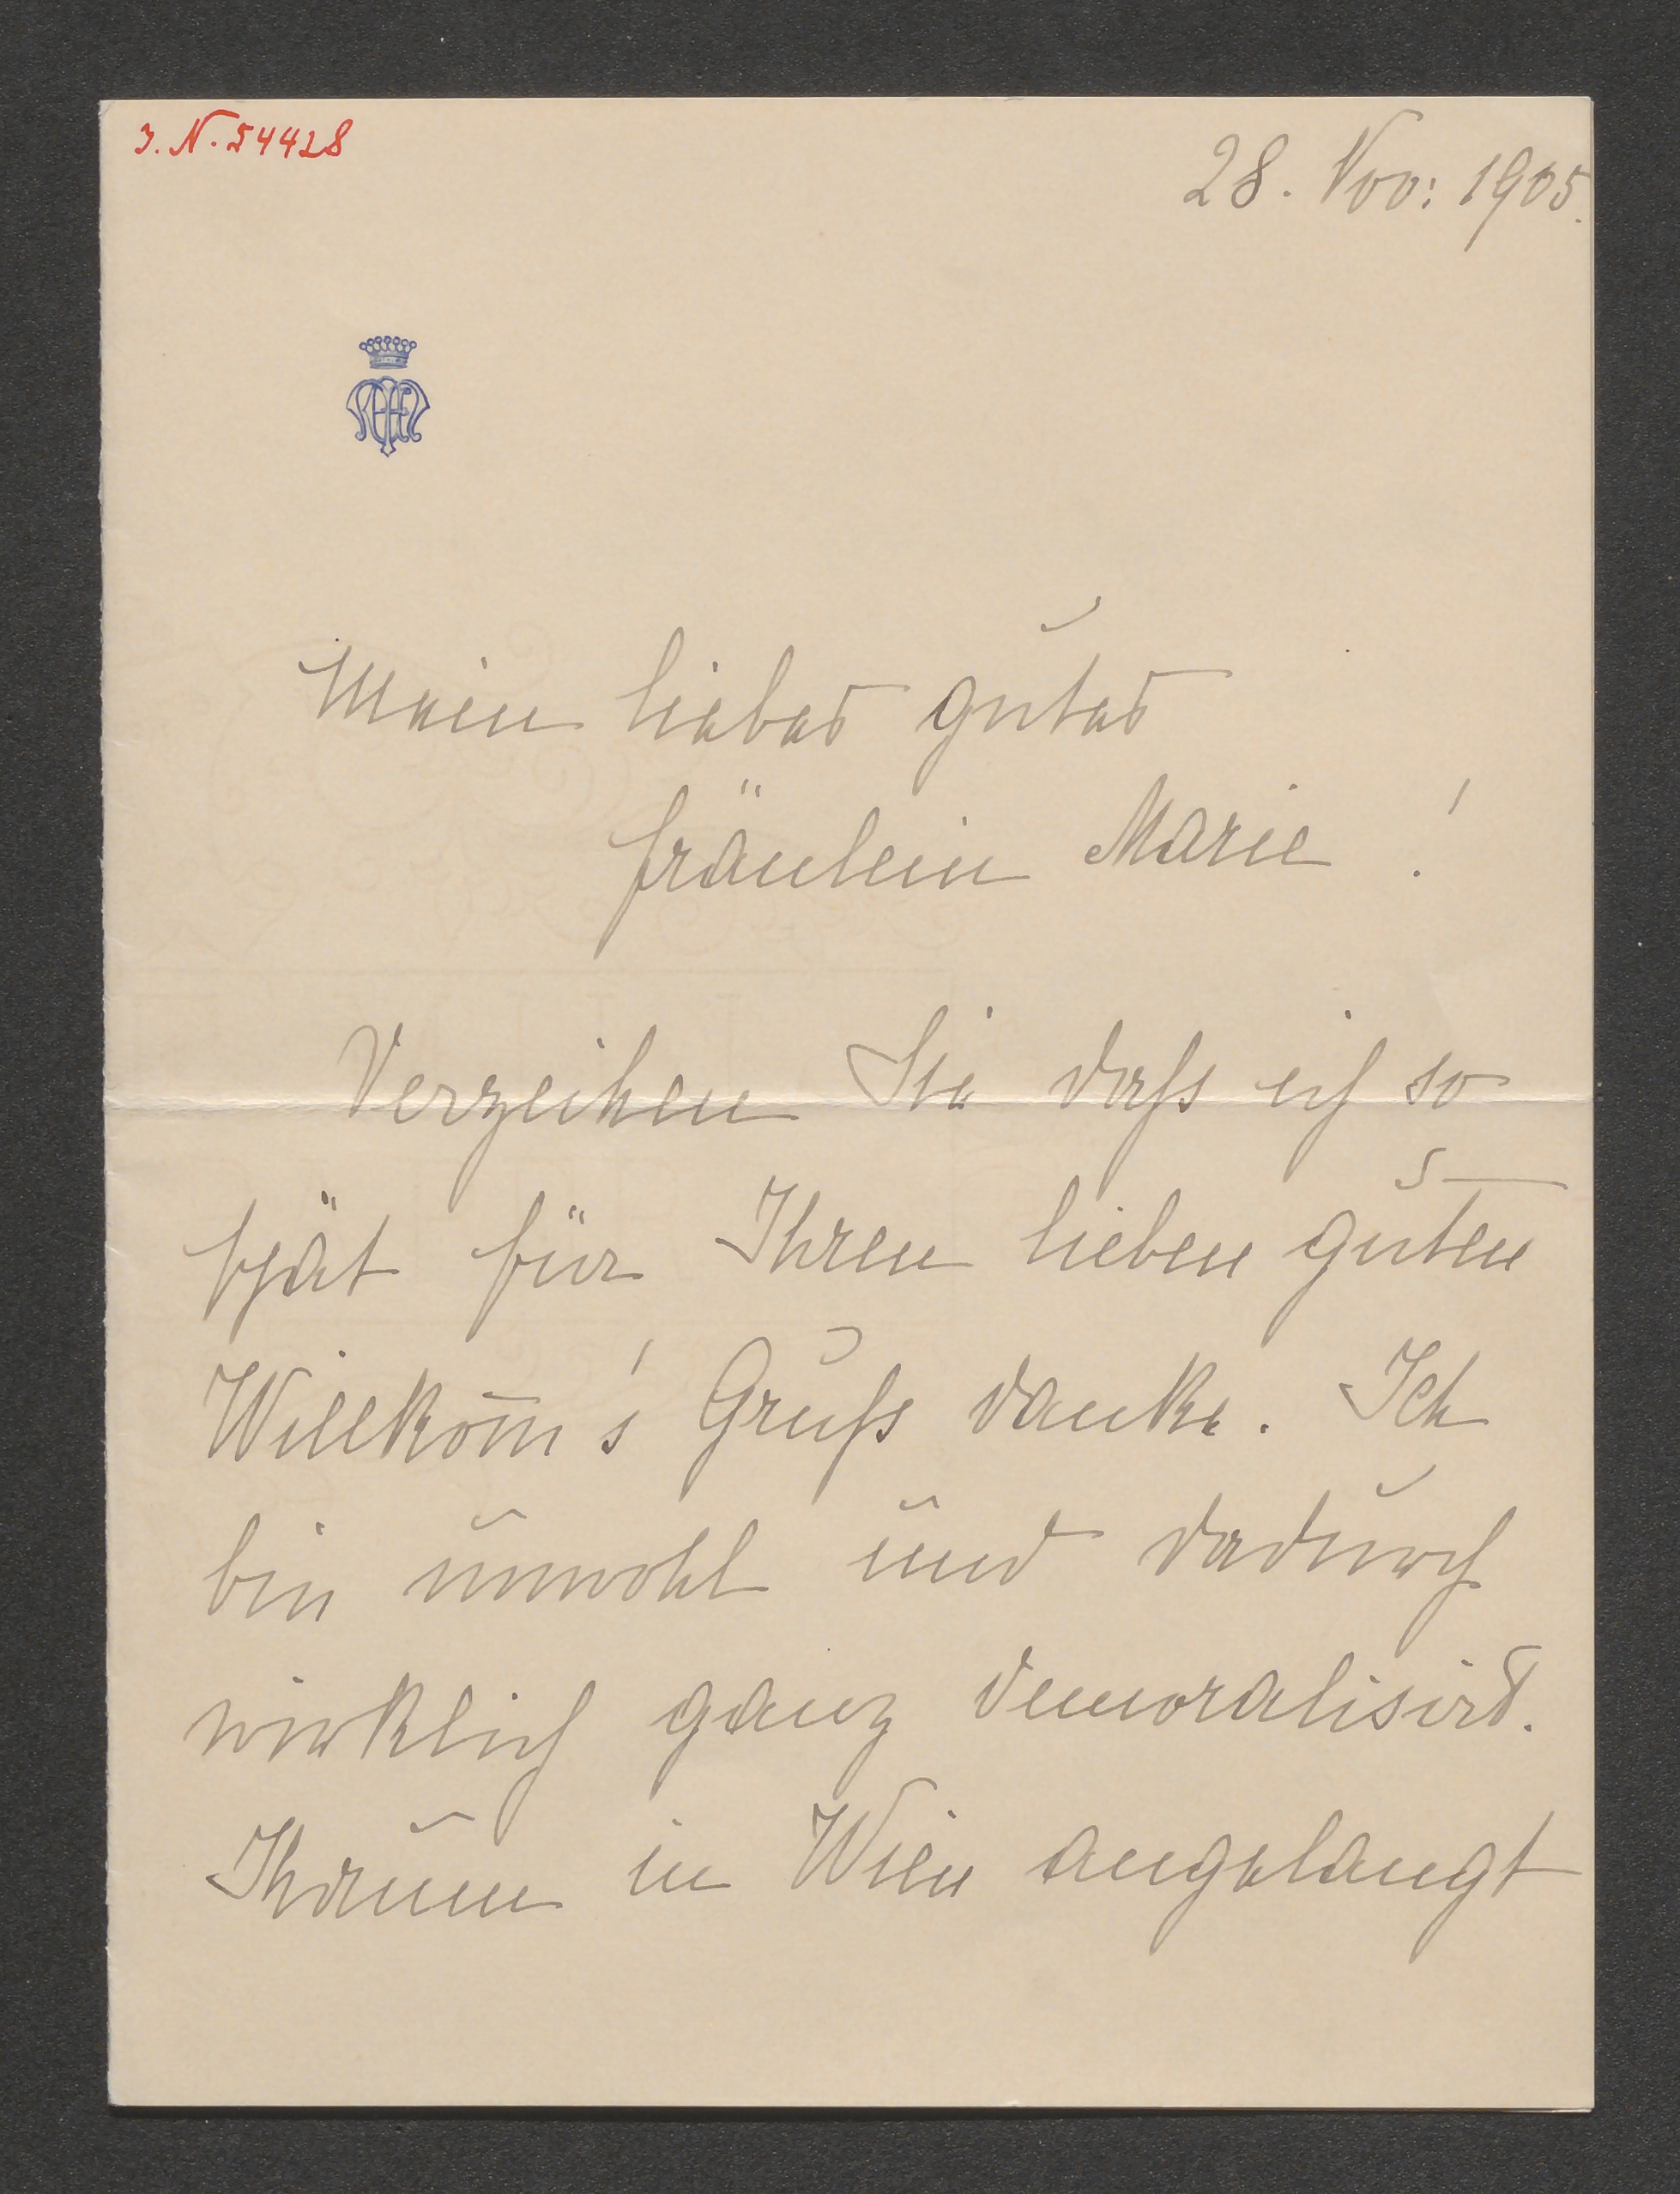 J. N. 54428
28. Nov: 1905.
Mein liebes gutes
Fräulein Marie!
Verzeihen Sie dass ich so
spät für Ihren lieben guten
Willkom̄'s Gruss danke. Ich
bin unwohl und dadurch
wirklich ganz demoralisirt.
Kaum in Wien angelangt